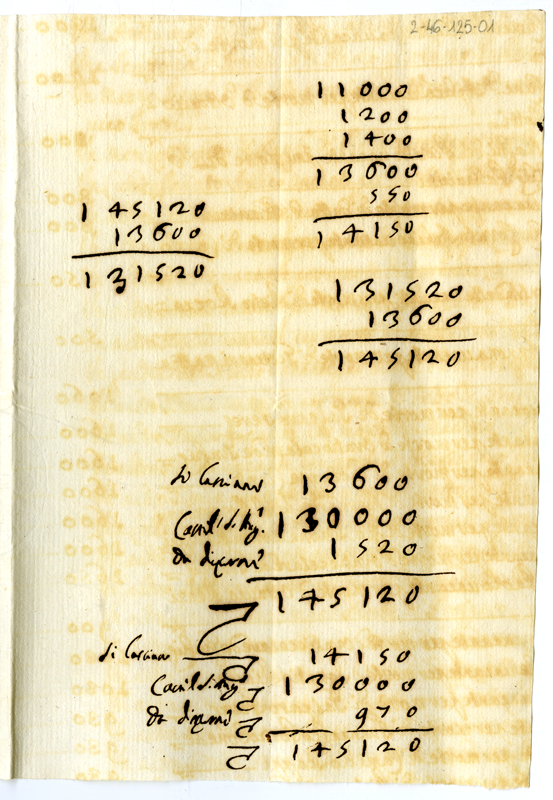 2-46-125-01
11000
1200
1400
13600
550
14150
145120
13600
131520
131520
13600
145120
di Casciano 13600
130000
Da diversi 1520
145120
di Casciano 14150
130000
Da diversi 970
145120